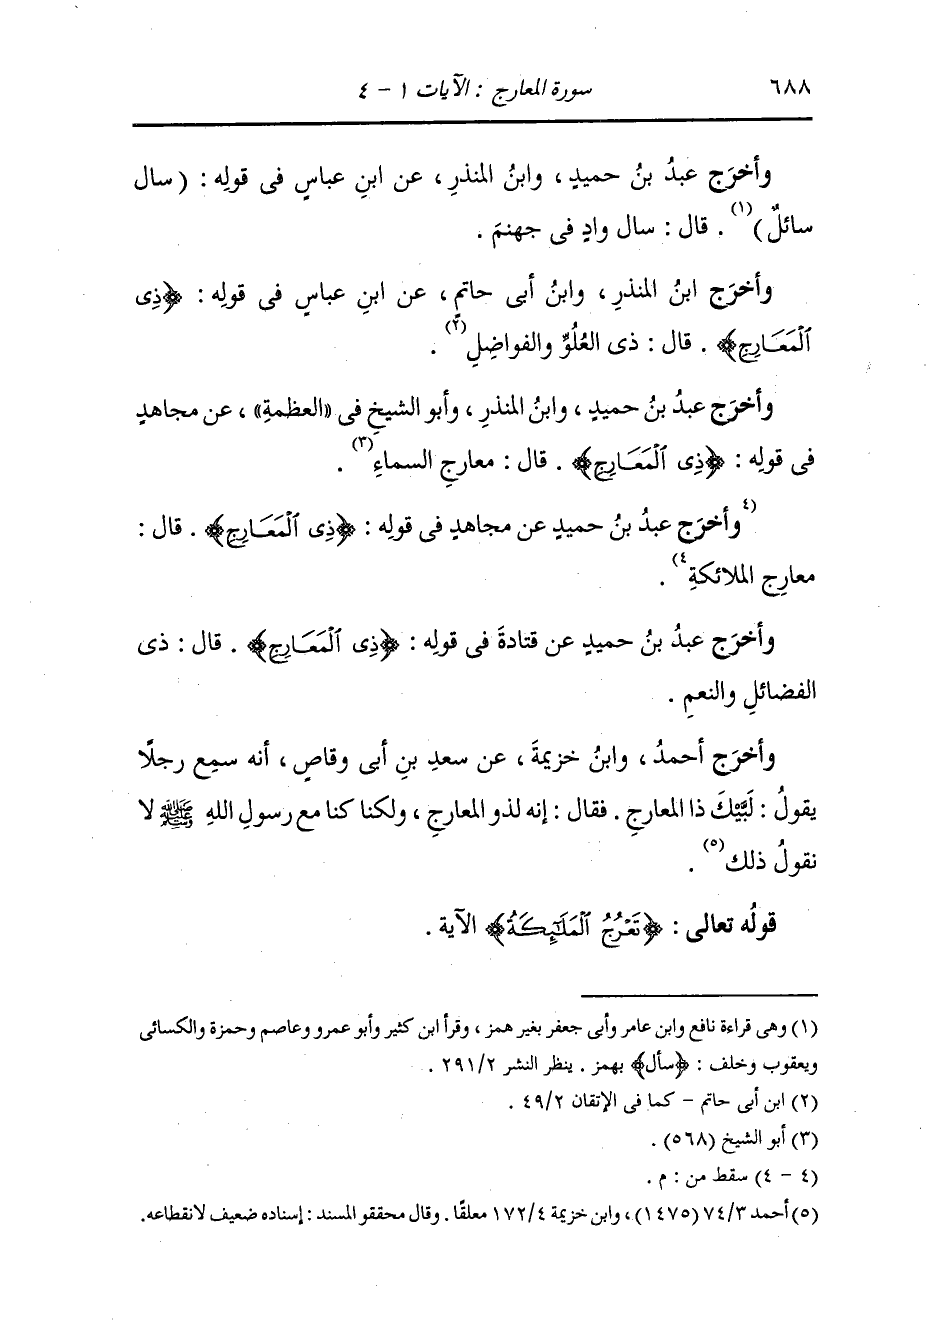 ٦٨٨
سورة المعارج : الآيات ١ - ٤
وأخرَج عبدُ بنُ حميدٍ ، وابنُ المنذرِ ، عن ابنِ عباسٍ فى قولِه : ( سال
سائلٌ )(١) . قال : سال وادٍ فى جهنمَ .
وأخرَج ابنُ المنذرِ ، وابنُ أبى حاتمٍ ، عن ابنِ عباسٍ فى قولِه : ﴿ذِى
ٱلْمَعَارِجِ﴾ . قال : ذى العُلُوِّ والفواضِلِ(٢) .
وأخرَج عبدُ بنُ حميدٍ ، وابنُ المنذرِ ، وأبو الشيخِ فى «العظمةِ» ، عن مجاهدٍ
فى قولِه : ﴿ذِى ٱلْمَعَارِجِ﴾ . قال : معارجِ السماءِ(٣) .
(٤وأخرَج عبدُ بنُ حميدٍ عن مجاهدٍ فى قولِه : ﴿ذِى ٱلْمَعَارِجِ﴾ . قال :
معارِجِ الملائكةِ٤) .
وأخرَج عبدُ بنُ حميدٍ عن قتادةَ فى قولِه : ﴿ذِى ٱلْمَعَارِجِ﴾ . قال : ذى
الفضائلِ والنعمِ .
وأخرَج أحمدُ ، وابنُ خزيمةَ ، عن سعدِ بنِ أبى وقاصٍ ، أنه سمِع رجلًا
يقولُ : لَبَّيْكَ ذا المعارجِ . فقال : إنه لذو المعارجِ ، ولكنا كنا مع رسولِ اللهِ ﷺ لا
نقولُ ذلك(٥) .
قولُه تعالى : ﴿تَعْرُجُ ٱلْمَلَٰٓئِكَةُ﴾ الآية .
(١) وهى قراءة نافع وابن عامر وأبى جعفر بغير همز ، وقرأ ابن كثير وأبو عمرو وعاصم وحمزة والكسائى
ويعقوب وخلف : ﴿سأل﴾ بهمز . ينظر النشر ٢٩١/٢ .
(٢) ابن أبى حاتم - كما فى الإتقان ٤٩/٢ .
(٣) أبو الشيخ (٥٦٨) .
(٤ - ٤) سقط من : م .
(٥) أحمد ٧٤/٣ (١٤٧٥) ، وابن خزيمة ١٧٢/٤ معلقًا . وقال محققو المسند : إسناده ضعيف لانقطاعه.